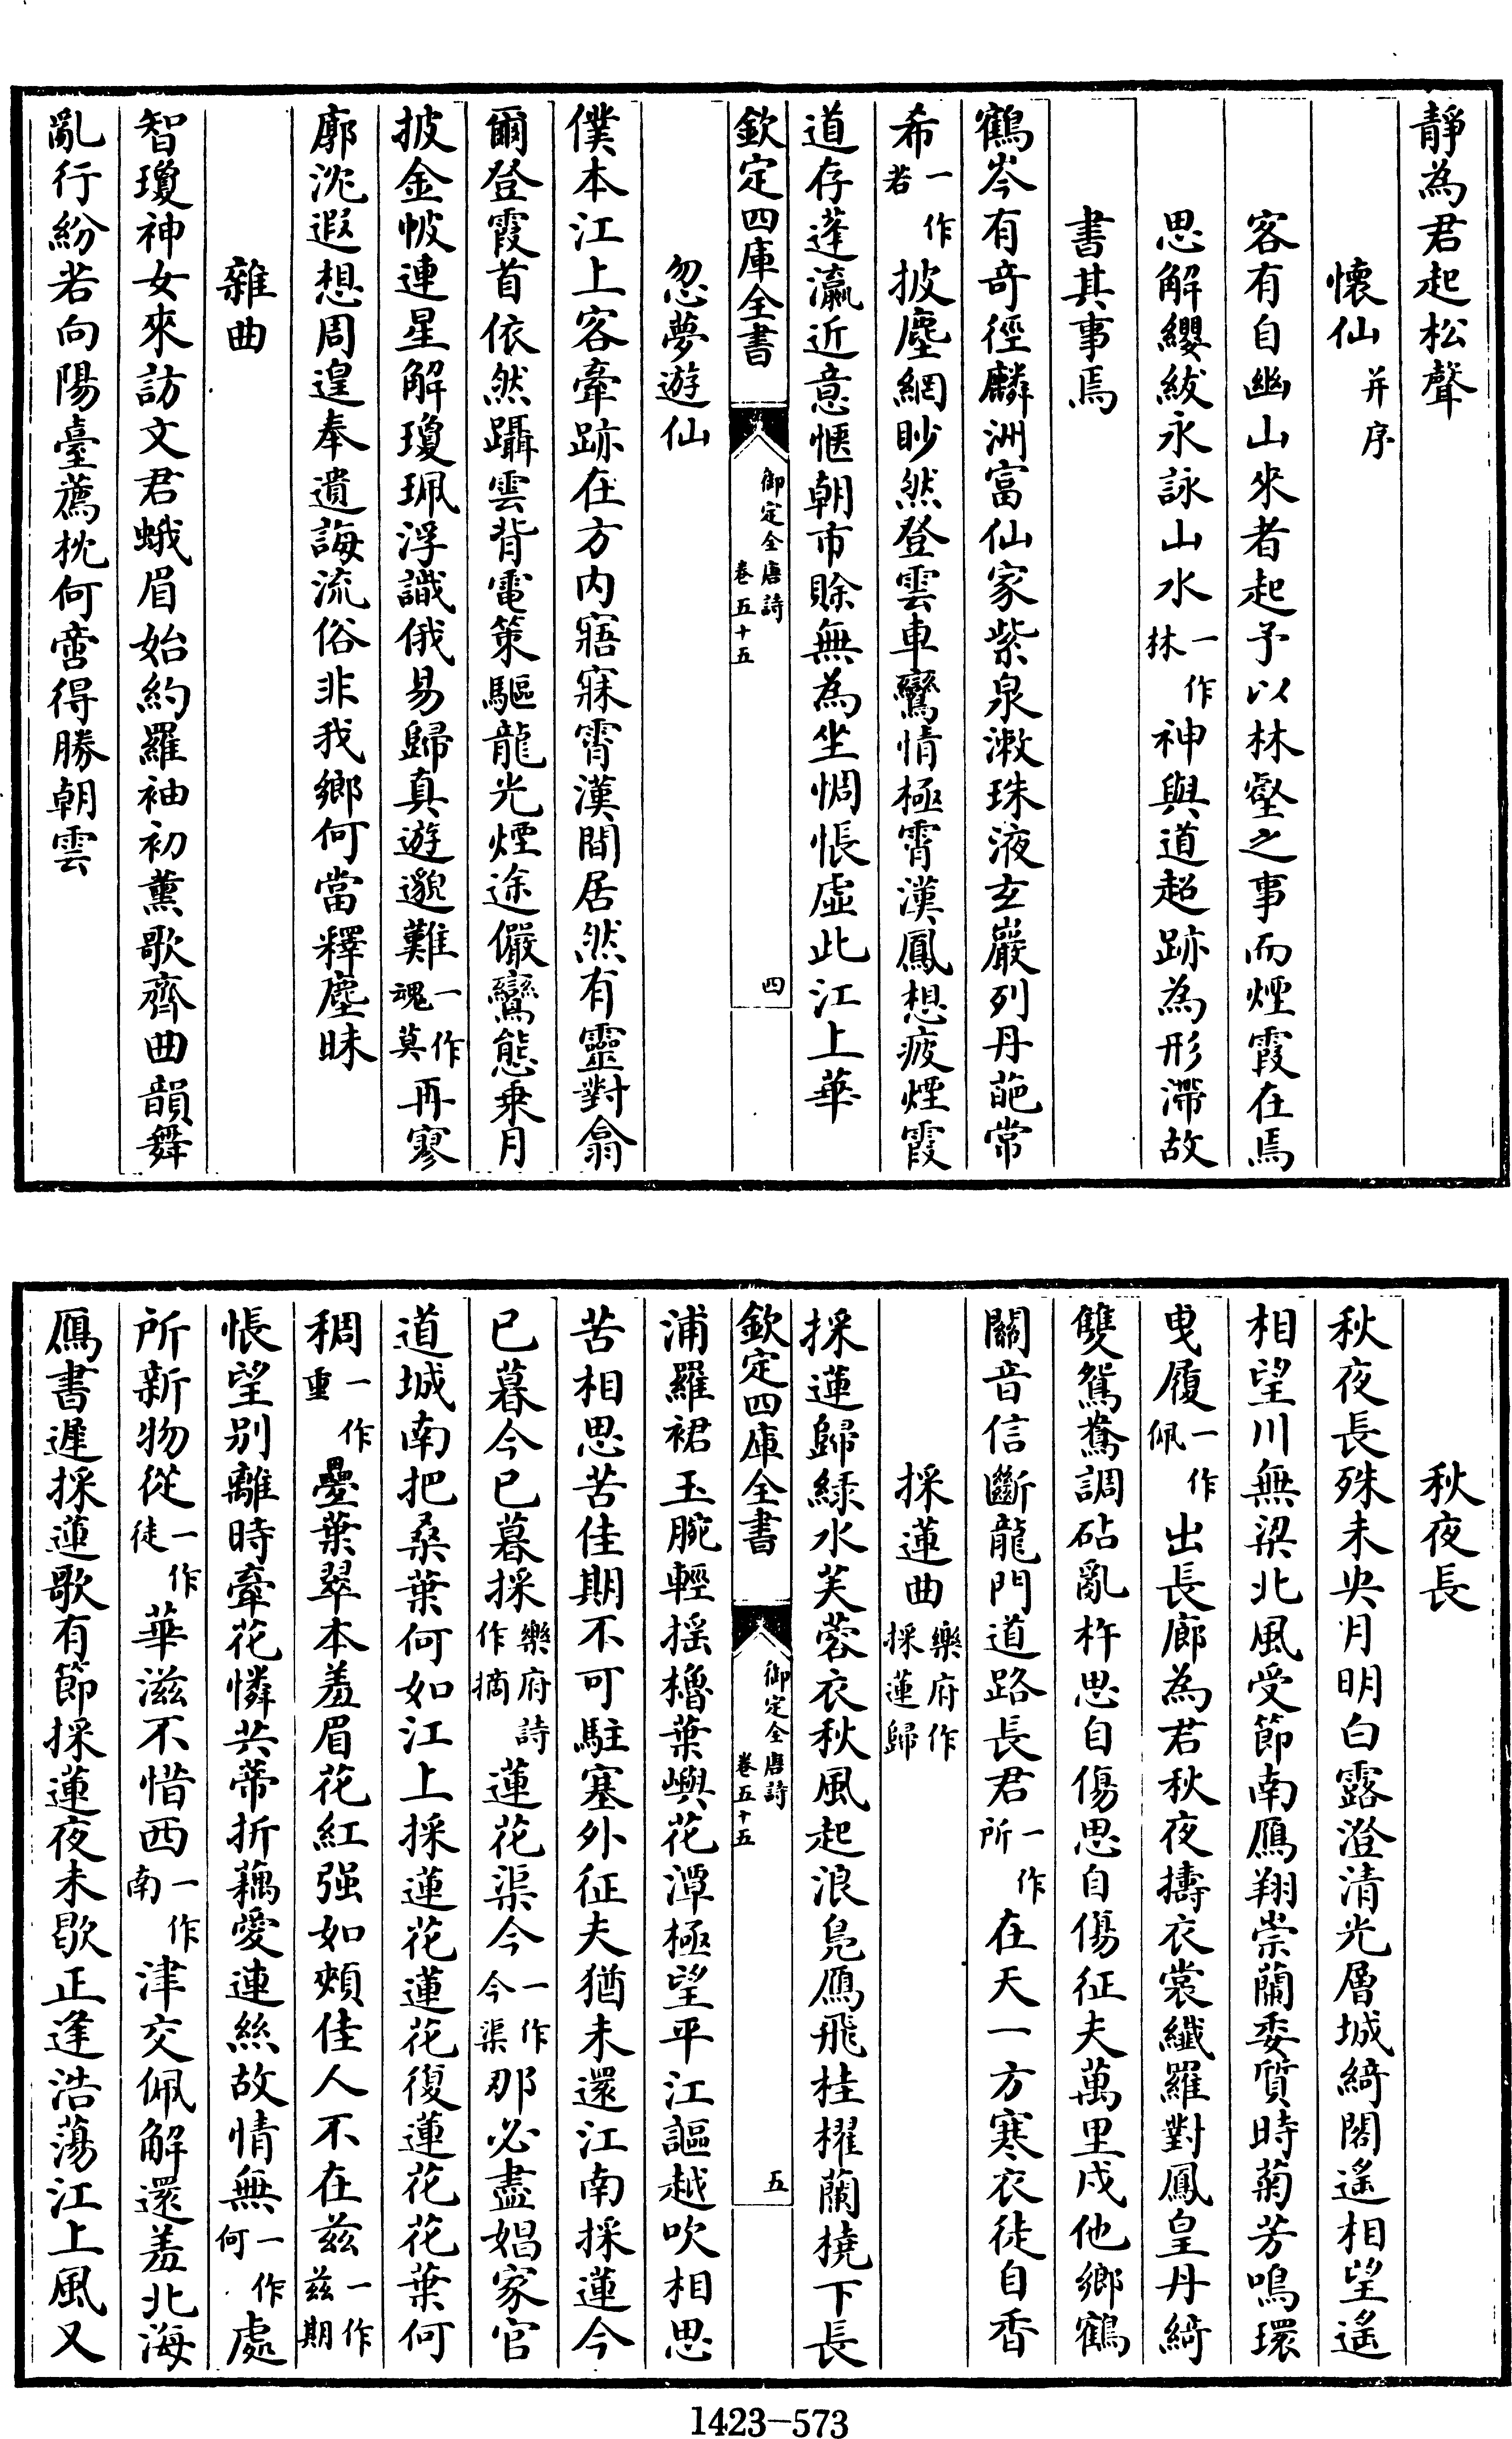 靜為君起松聲
懷仙并序
客有自幽山來者起予以林壑之事而煙霞在焉
思解纓紱永詠山水一作林神與道超跡為形滯故
書其事焉
鶴岑有奇徑麟洲富仙家紫泉漱珠液玄巖列丹葩常
希一作若披塵網眇然登雲車鸞情極霄漢鳳想疲煙霞
道存蓬瀛近意愜朝市賒無為坐惆悵虛此江上華
欽定四庫全書
御定全唐詩
卷五十五
四
忽夢遊仙
僕本江上客牽跡在方内寤寐霄漢間居然有靈對翕
爾登霞首依然躡雲背電策驅龍光煙途儼鸞態乗月
披金帔連星解瓊珮浮識俄易歸真遊邈難一作魂莫再寥
廓沈遐想周遑奉遺誨流俗非我鄉何當釋塵昧
雜曲
智瓊神女來訪文君蛾眉始約羅袖初薰歌齊曲韻舞
亂行紛若向陽臺薦枕何啻得勝朝雲
秋夜長
秋夜長殊未央月明白露澄清光層城綺閣遙相望遙
相望川無梁北風受節南鴈翔崇蘭委質時菊芳鳴環
曳履一作佩出長廊為君秋夜擣衣裳纖羅對鳳皇丹綺
雙鴛鴦調砧亂杵思自傷思自傷征夫萬里戍他鄉鶴
關音信斷龍門道路長君一作所在天一方寒衣徒自香
採蓮曲樂府作採蓮歸
採蓮歸緑水芙蓉衣秋風起浪鳬鴈飛桂櫂蘭橈下長
欽定四庫全書
御定全唐詩
卷五十五
五
浦羅裙玉腕輕摇櫓葉嶼花潭極望平江謳越吹相思
苦相思苦佳期不可駐塞外征夫猶未還江南採蓮今
已暮今已暮採樂府詩作摘蓮花渠今一作今渠那必盡娼家官
道城南把桑葉何如江上採蓮花蓮花復蓮花花葉何
稠一作重疊葉翠本羞眉花紅强如頰佳人不在兹一作兹期
悵望别離時牽花憐共蒂折藕愛連絲故情無一作何處
所新物從一作徒華滋不惜西一作南津交佩解還羞北海
鴈書遲採蓮歌有節採蓮夜未歇正逢浩蕩江上風又
1423-573